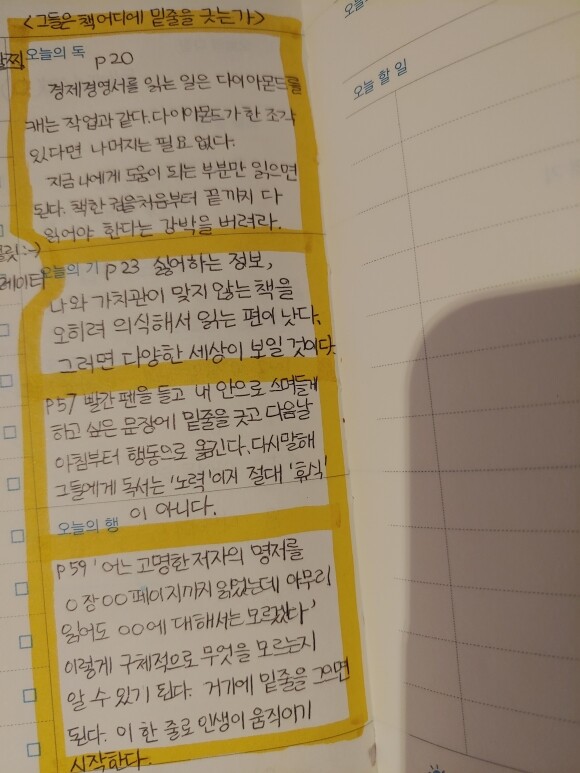 <그들은 책 어디에 밑줄을 긋는가>
오늘의 독 p20
경제경영서를 읽는 일은 다이아몬드를
캐는 작업과 같다. 다이아몬드가 한 조각
있다면 나머지는 필요 없다.
지금 나에게 도움이 되는 부분만 읽으면
된다. 책 한 권을 처음부터 끝까지 다
읽어야 한다는 강박을 버려라.
오늘의 기 p23 싫어하는 정보,
나와 가치관이 맞지 않는 책을
오히려 의식해서 읽는 편이 낫다.
그러면 다양한 세상이 보일 것이다.
p57 빨간 펜을 들고 내 안으로 스며들게
하고 싶은 문장에 밑줄을 긋고 다음날
아침부터 행동으로 옮긴다. 다시말해
그들에게 독서는 '노력'이지 절대 '휴식'
이 아니다.
오늘의 행
p59 '어느 고명한 저자의 명저를
0장 00페이지까지 읽었는데 아무리
읽어도 00에 대해서는 모르겠다'
이렇게 구체적으로 무엇을 모르는지
알 수 있기 된다. 거기에 밑줄을 그으면
된다. 이 한 줄로 인생이 움직이기
시작한다.
오늘 할 일